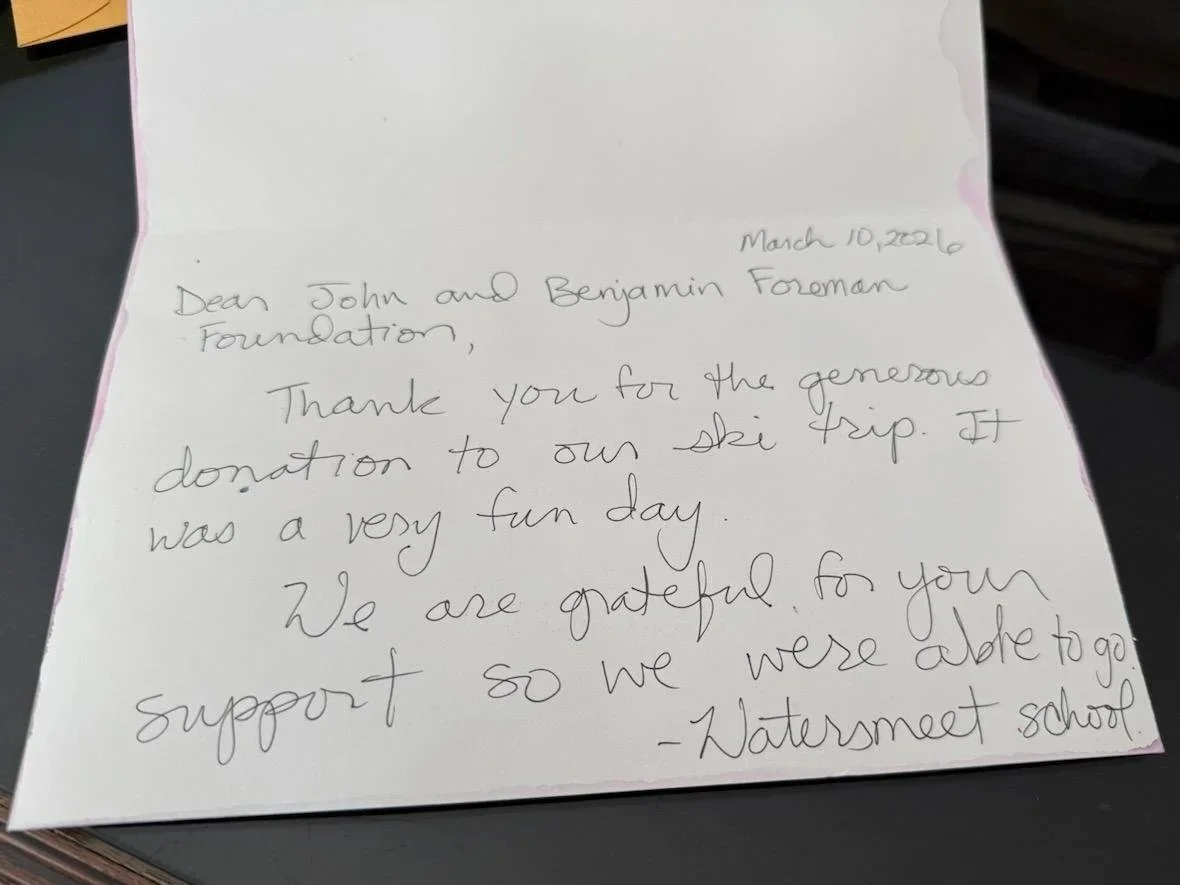 March 10, 2026
Dear John and Benjamin Foreman
Foundation,
Thank you for the generous
donation to our ski trip. It
was a very fun day.
We are grateful for your
support so we were able to go.
- Watersmeet school.